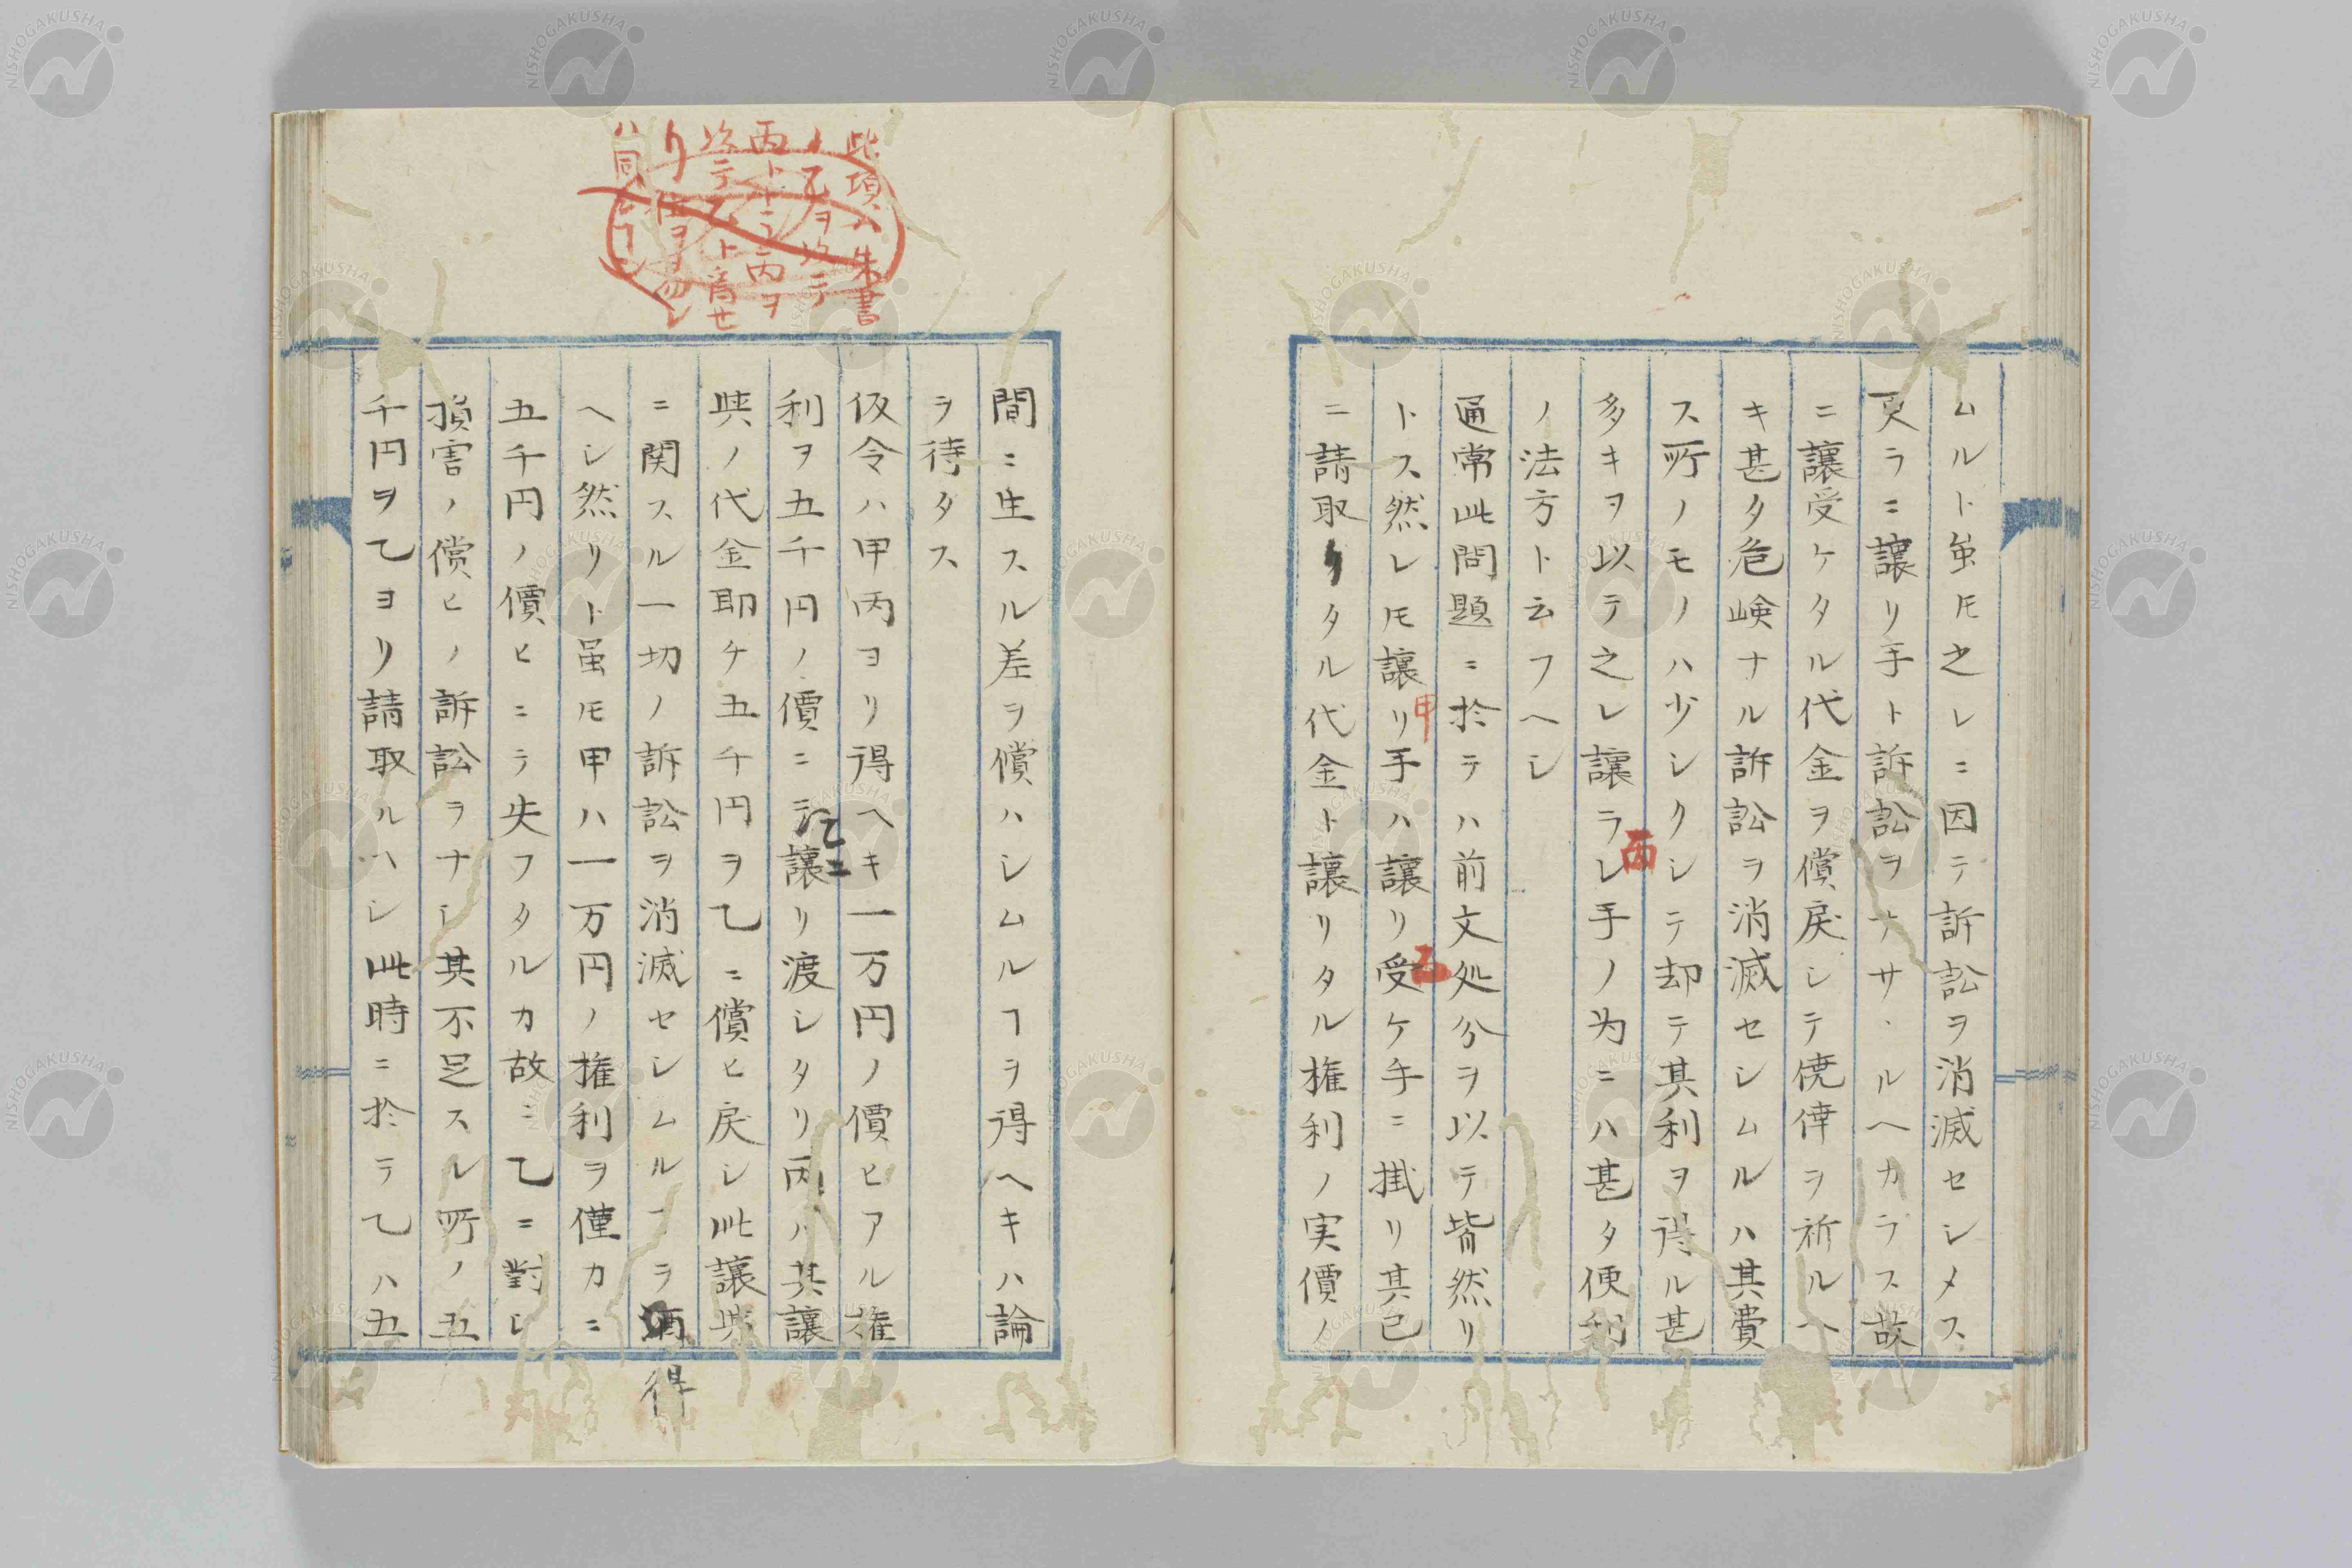 ムルト虽𪜈之レニ因テ訴訟ヲ消滅セシメス
更ラニ讓リ手ト訴訟ヲナサヽルヘカラス故
ニ讓受ケタル代金ヲ償戻シテ僥倖ヲ祈ルヘ
キ甚タ危険ナル訴訟ヲ消滅セシムルハ其費
ス所ノモノハ少シクシテ却テ其利ヲ得ル甚
多キヲ以テ之レ讓ラレ手ノ为ニハ甚タ便利
丙
ノ法方ト云フヘシ
通常此問題ニ於テハ前文処分ヲ以テ皆然リ
トス然レ𪜈讓リ手ハ讓リ受ケ手ニ掛リ其已
甲
乙
ニ請取リタル代金ト讓リタル権利ノ実價ノ
此項ハ朱書
ノ
ヲ改テ
丙トシ丙ヲ
改テ乙ト爲セ
リ
ハ同
間ニ生スル差ヲ償ハシムルヿヲ得ヘキハ論
ヲ待タス
仮令ハ甲丙ヨリ得ヘキ一万円ノ價ヒアル権
利ヲ五千円ノ價ニテ讓リ渡シタリ丙ハ其讓
乙ニ
與ノ代金即ケ五千円ヲ乙ニ償ヒ戻シ此讓與
ニ関スル一切ノ訴訟ヲ消滅セシムルヿヲ
得
ヘシ然リト虽𪜈甲ハ一万円ノ権利ヲ僅カニ
五千円ノ價ヒニテ失フタルカ故ニ乙ニ對シ
損害ノ償ヒノ訴訟ヲナシ其不足スル所ノ五
千円ヲ乙ヨリ請取ルヘシ此時ニ於テ乙ハ五
NISHOGAKUSHA